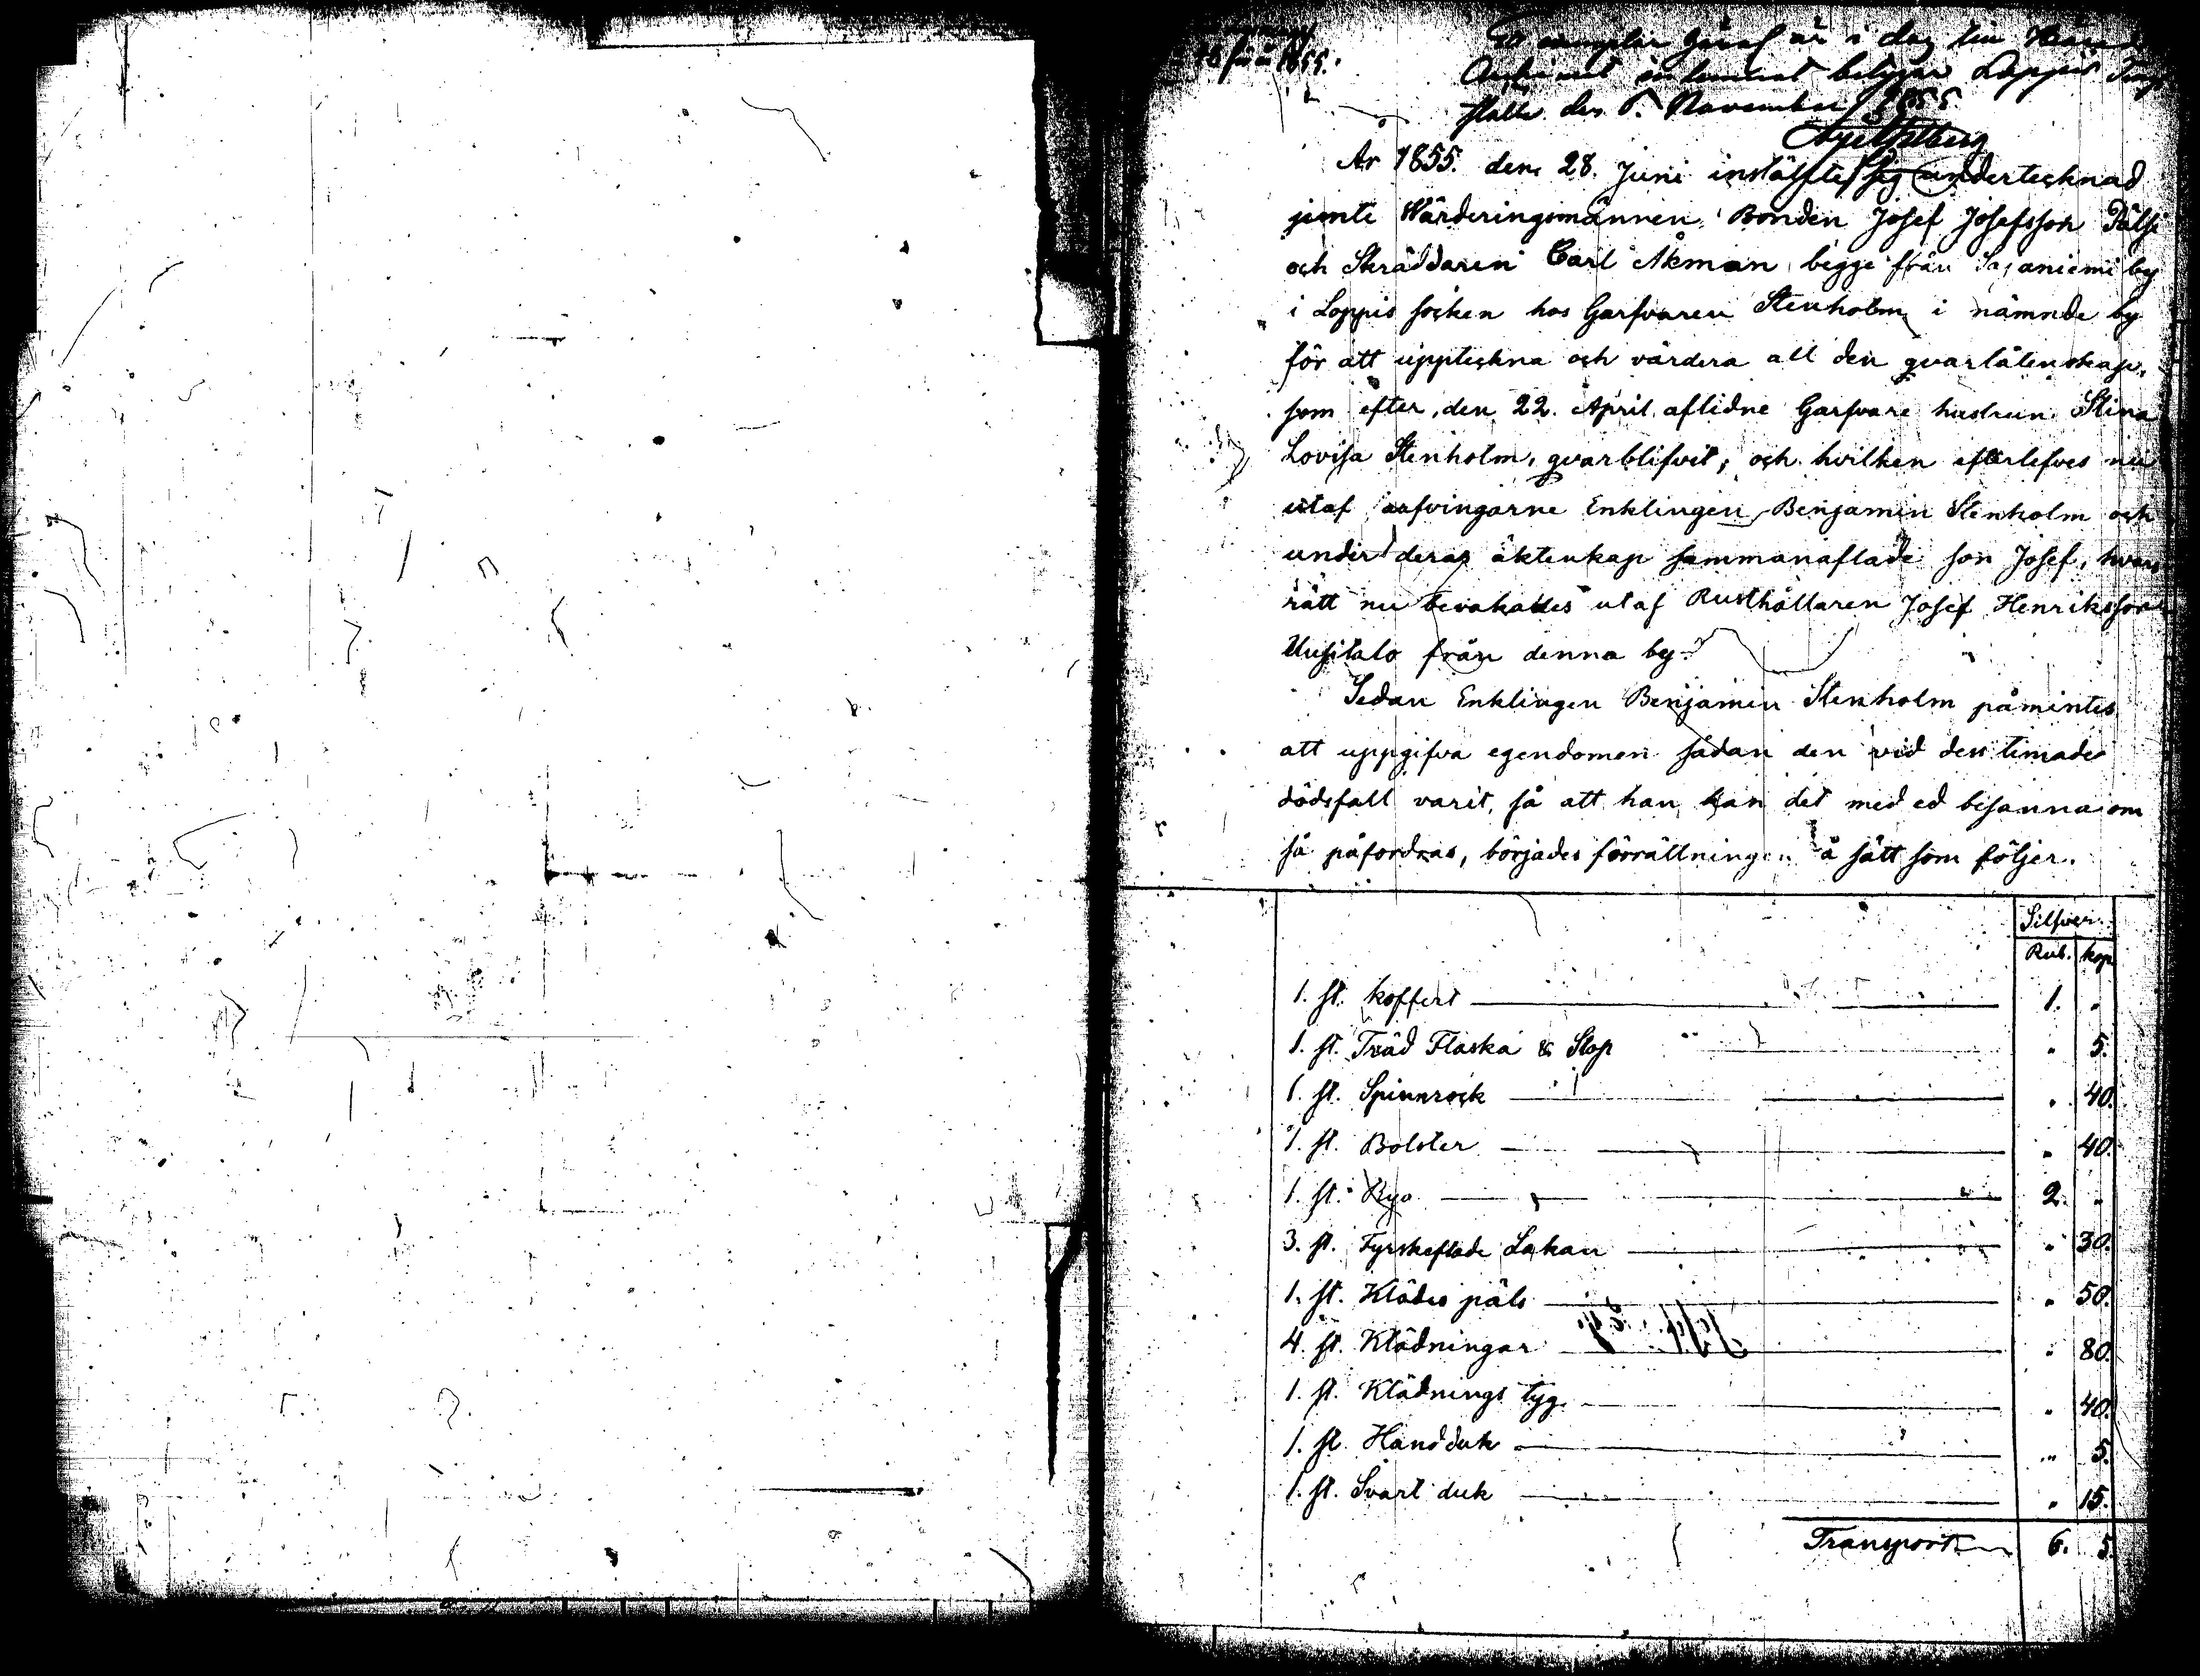 18 1855.
Ett exemplar häraf är i dag till Härads
Archivet inlemnat betygar Loppis Tings
ställe den 6. November 1855
År 1855. den 28. Juni instälte sig undertecknad
jemte Wärderingsmännen Bonden Josef Josefsson
och Skräddaren Carl Åkman begge från Sajaniemi by
i Loppis socken hos Garfvaren Stenholm i nämnde by
för att uppteckna och värdera all den qvarlåtenskap,
som efter den 22. April aflidne Garfvare hustrun Stina
Lovisa Stenholm, qvarblifvit, och hvilken efterlefves nu
utaf arfvingarne Enklingen Benjamin Stenholm och
under deras äktenkap sammanaflade son Josef, hvars
rätt nu bevakades utaf Rusthållaren Josef Henriksson
Uusitalo från denna by.
Sedan Enklingen Benjamin Stenholm påmintes
att uppgifva egendomen sådan den vid dess timade
dödsfall varit, så att han kan det med ed besanna om
så påfordras, börjades förrättningen å sätt som följer.
Silfver.
Rub. kop
1. st. koffert 1. "
1. st. Träd Flaska & Stop " 5.
1. st. Spinnrock " 40.
1. st. Bolster " 40.
1. st. Rya 2. "
3. st. Fyrskeftade Lakan " 30.
1. st. Klädes päls " 50.
4. st. Klädningar " 80.
1. st. Klädnings tyg " 40.
1. st. Handduk " 5.
1. st. Svart duk " 15.
Transport 6. 5.